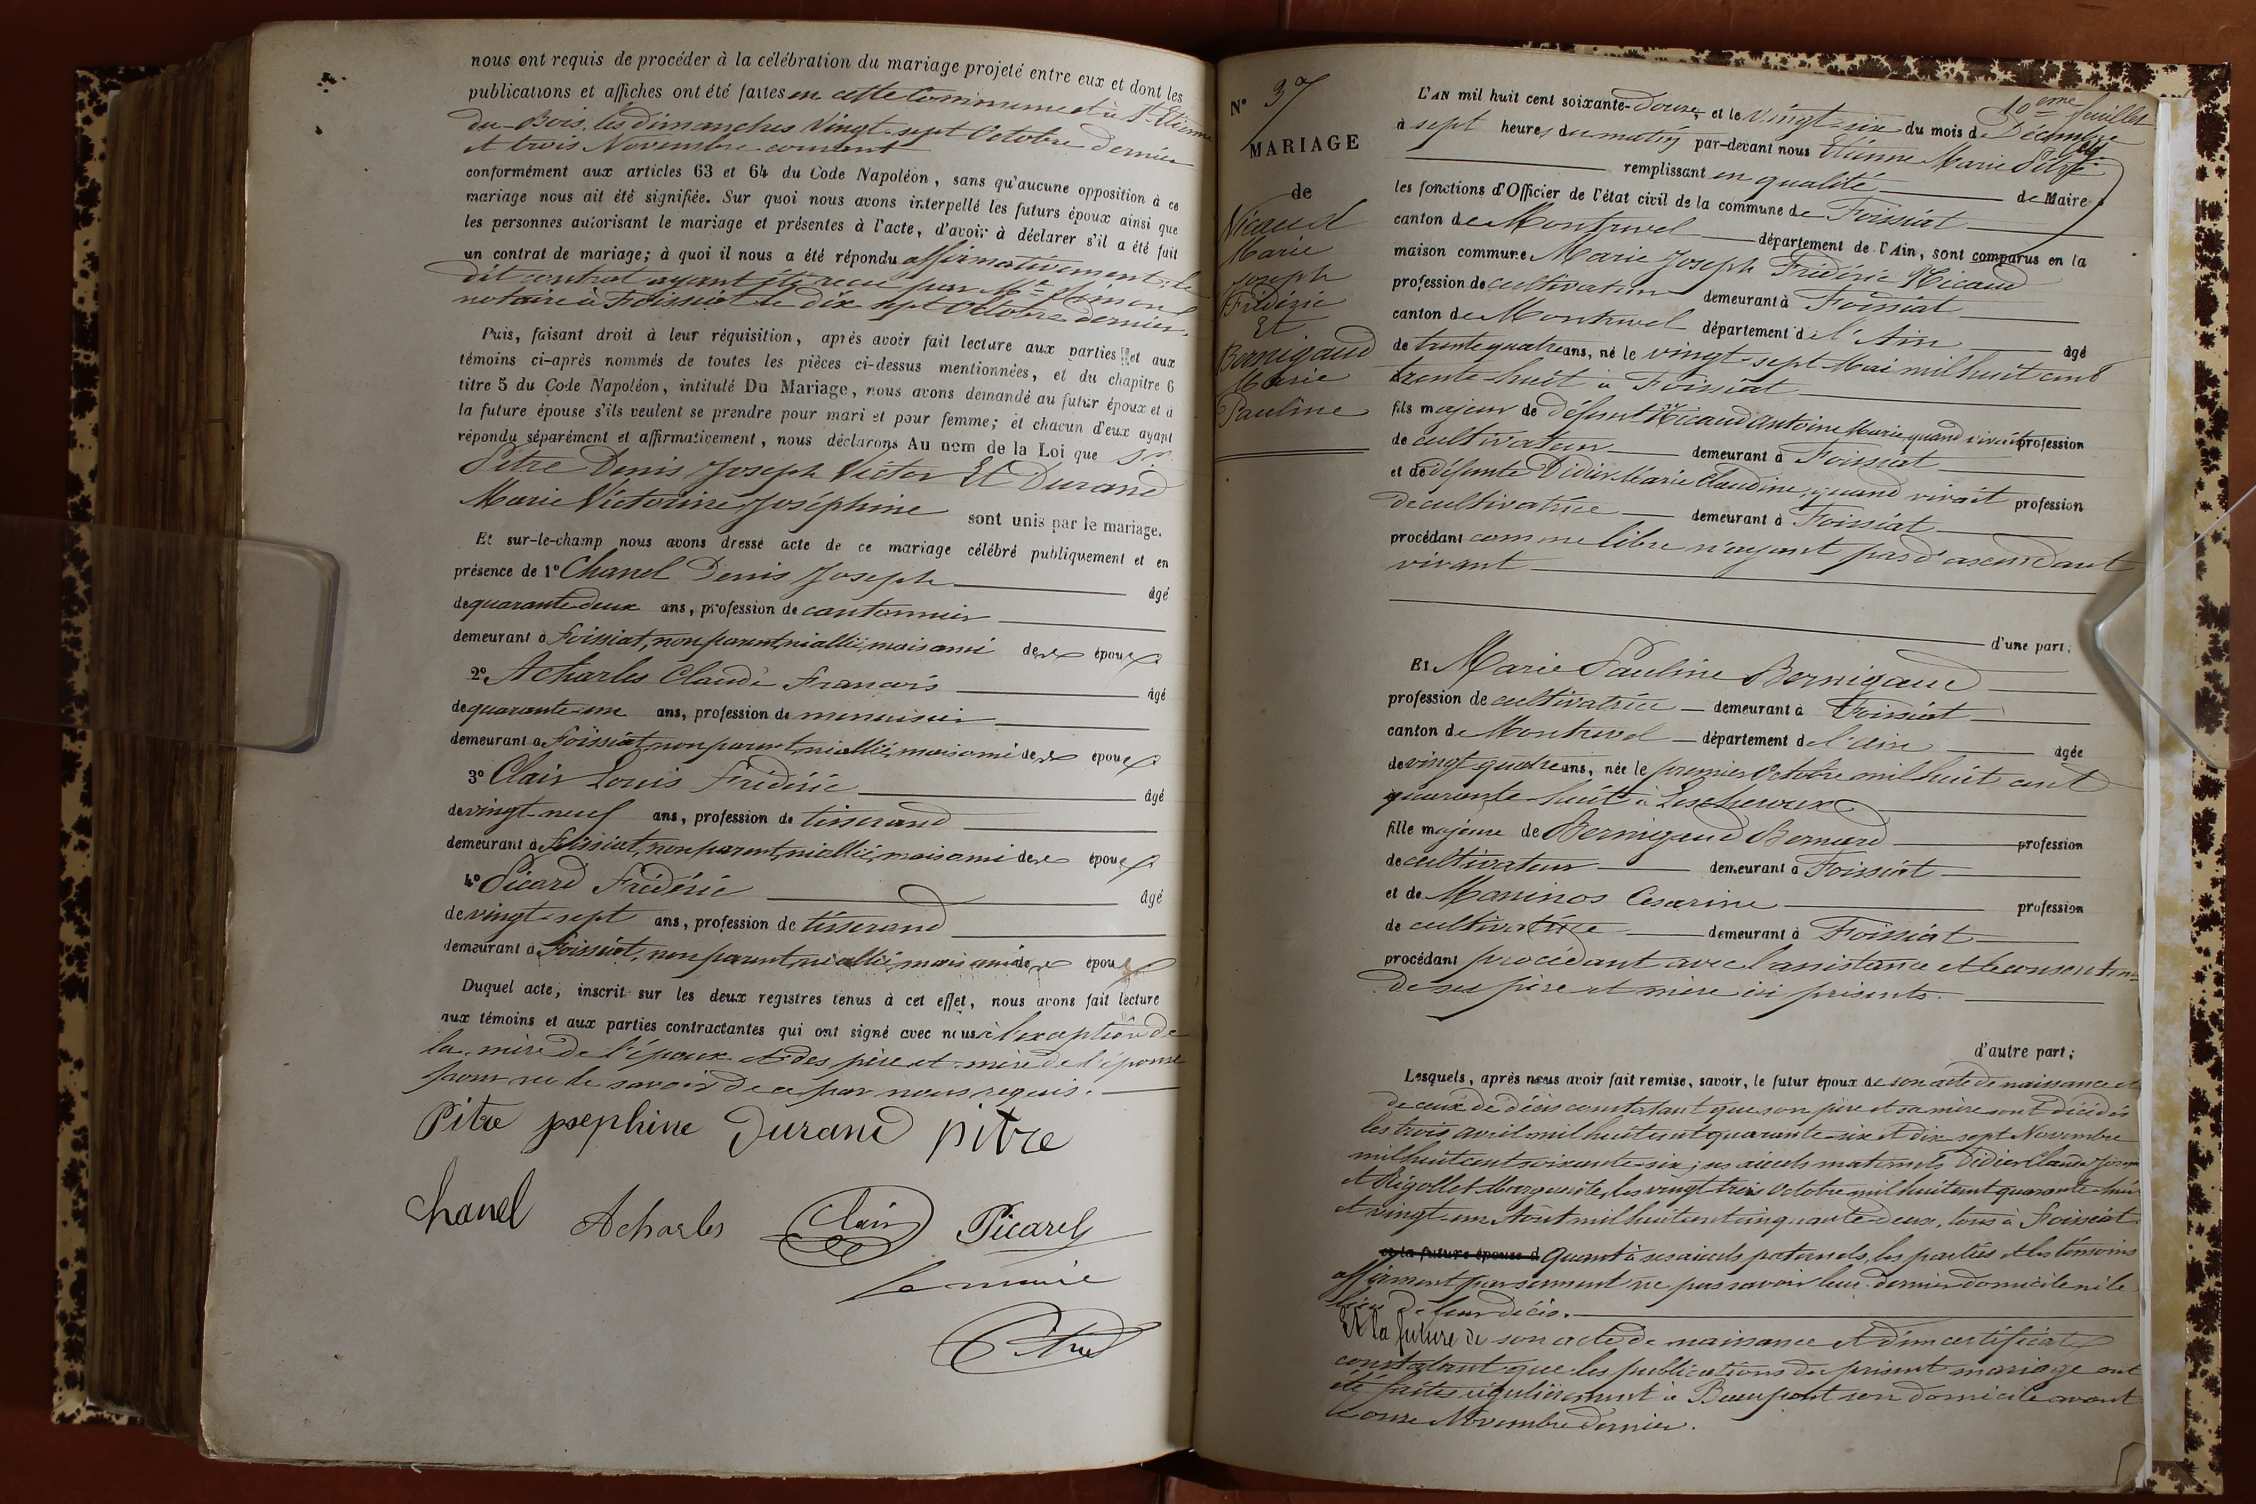 nous ont requis de procéder à la célébration du mariage projeté entre eux et dont les
publications et affiches ont été faites en cette Commune et à St Etienne
du-Bois, les dimanches vingt-sept Octobre dernier
et trois Novembre courant
conformément aux articles 63 et 64 du Code Napoléon, sans qu'aucune opposition à ce
mariage nous ait été signifiée. Sur quoi nous avons interpellé les futurs époux ainsi que
les personnes autorisant le mariage et présentes à l'acte, d'avoir à déclarer s'il a été fait
un contrat de mariage; à quoi il nous a été répondu affirmativement, le
dit contrat ayant été reçu par Me
notaire à Foissiat le dix sept Octobre dernier.
Puis, faisant droit à leur réquisition, après avoir fait lecture aux parties et aux
témoins ci-après nommés de toutes les pièces ci-dessus mentionnées, et du chapitre 6
titre 5 du Code Napoléon, intitulé Du Mariage, nous avons demandé au futur époux et à
la future épouse s'ils veulent se prendre pour mari et pour femme; et chacun d'eux ayant
répondu séparément et affirmativement, nous déclarons Au nom de la Loi que
Pitre Denis Joseph Victor Et Durand
Marie Victorine Joséphine sont unis par le mariage.
Et sur-le-champ nous avons dressé acte de ce mariage célébré publiquement et en
présence de 1° Chanel Denis Joseph âgé
de quarante-deux ans, profession de cantonnier
demeurant à Foissiat, non parent, ni allié, mais ami des époux
2° Acharles Claude François âgé
de quarante-un ans, profession de menuisier
demeurant à Foissiat, non parent, ni allié, mais ami des époux
3° Clair Louis Frédéric âgé
de vingt-neuf ans, profession de tisserand
demeurant à Foissiat, non parent, ni allié, mais ami des époux
4° Picard Frédéric âgé
de vingt-sept ans, profession de tisserand
demeurant à Foissiat, non parent, ni allié, mais ami des époux
Duquel acte, inscrit sur les deux registres tenus à cet effet, nous avons fait lecture
aux témoins et aux parties contractantes qui ont signé avec nous à l'exception de
la mère de l'époux et des père et mère de l'épouse
pour ne le savoir de ce par nous requis.
Pitre josephine Durand pitre
Chanel Acharles Clair Picard
le maire
Pitre
16eme feuillet
N° 37
MARIAGE
de
Nicaud
Marie
Joseph
Frédéric
Et
Bernigaud
Marie
Pauline
L'AN mil huit cent soixante-douze, et le vingt-six du mois de Décembre
à sept heures du matin par-devant nous Etienne Marie Pitre
remplissant en qualité de Maire
les fonctions d'Officier de l'état civil de la commune de Foissiat
canton de Montrevel département de l'Ain, sont comparus en la
maison commune Marie Joseph Frédéric Nicaud
profession de cultivateur demeurant à Foissiat
canton de Montrevel département de l'Ain âgé
de trente quatre ans, né le vingt-sept Mai mil huit cent
trente huit à Foissiat
fils majeur de défunt Nicaud Antoine Marie, quand vivait profession
de cultivateur demeurant à Foissiat
et de défunte Didier Marie Claudine, quand vivait profession
de cultivatrice demeurant à Foissiat
procédant comme libre n'ayant pas d'ascendant
vivant
d'une part;
Et Marie Pauline Bernigaud
profession de cultivatrice demeurant à Foissiat
canton de Montrevel département de l'Ain âgée
de vingt-quatre ans, née le premier Octobre mil huit cent
quarante-huit à Lescheroux
fille majeure de Bernigaud Bernard profession
de cultivateur demeurant à Foissiat
et de Maninos Césarine profession
de cultivatrice demeurant à Foissiat
procédant procédant avec l'assistance et le consentem
de ses père et mère ici présents.
d'autre part;
Lesquels, après nous avoir fait remise, savoir, le futur époux de son acte de naissance et
de ceux de décès constatant que son père et sa mère sont décédés
les trois avril mil huit cent quarante-six et dix-sept Novembre
mil huit cent soixante-six; ses aïeuls maternels Didier Claude
et Rigollet Marguerite, les vingt-trois Octobre mil huit cent quarante-huit
et vingt-un Août mil huit cent cinquante-deux, tous à Foissiat
et la future épouse d Quant à ses aïeuls paternels, les parties et les témoins
affirment par serment ne pas savoir leur dernier domicile ni le
lieu de leur décès.
Et la future de son acte de naissance et d'un certificat
constatant que les publications du présent mariage ont
été faites régulièrement à Beaupont son domicile avant
le onze Novembre dernier.